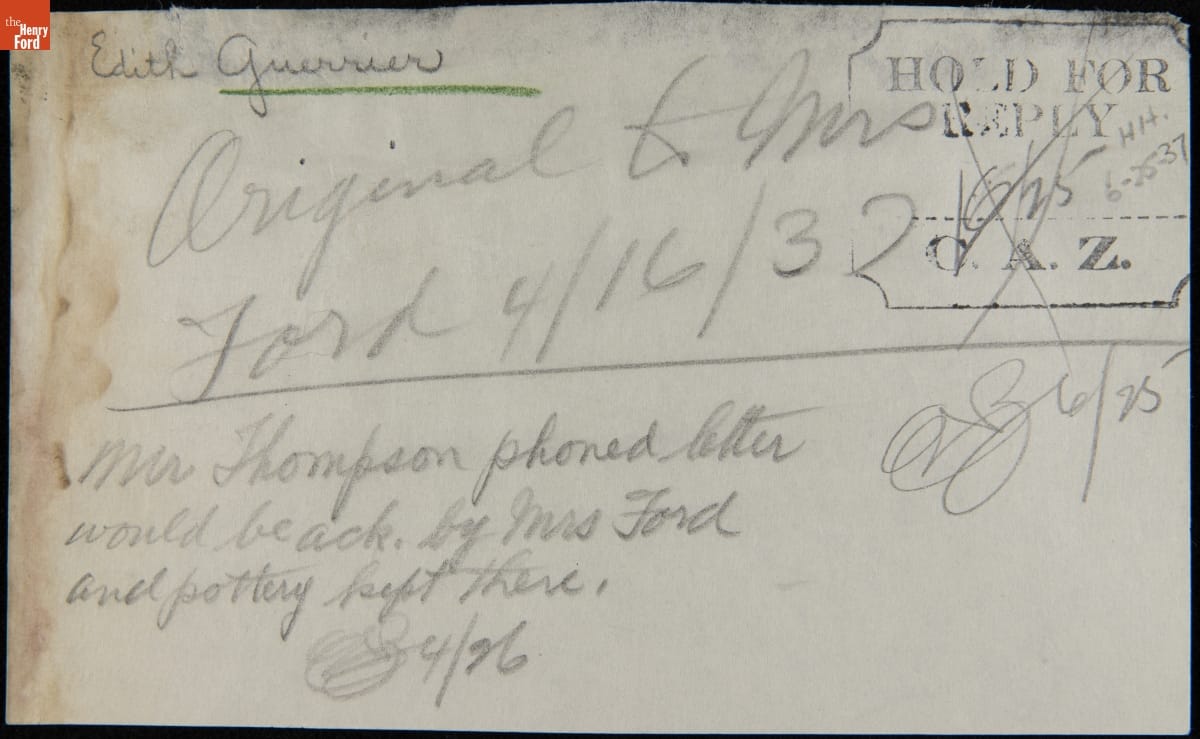 the
Henry
Ford
Edith Guerrier
HOLD FOR
REPLY
H.H.
6-25-37
6/25
C. A. Z.
Original to Mrs
Ford 4/16/37
6/25
Mr Thompson phoned letter
would be ack. by Mrs Ford
and pottery kept there.
4/26